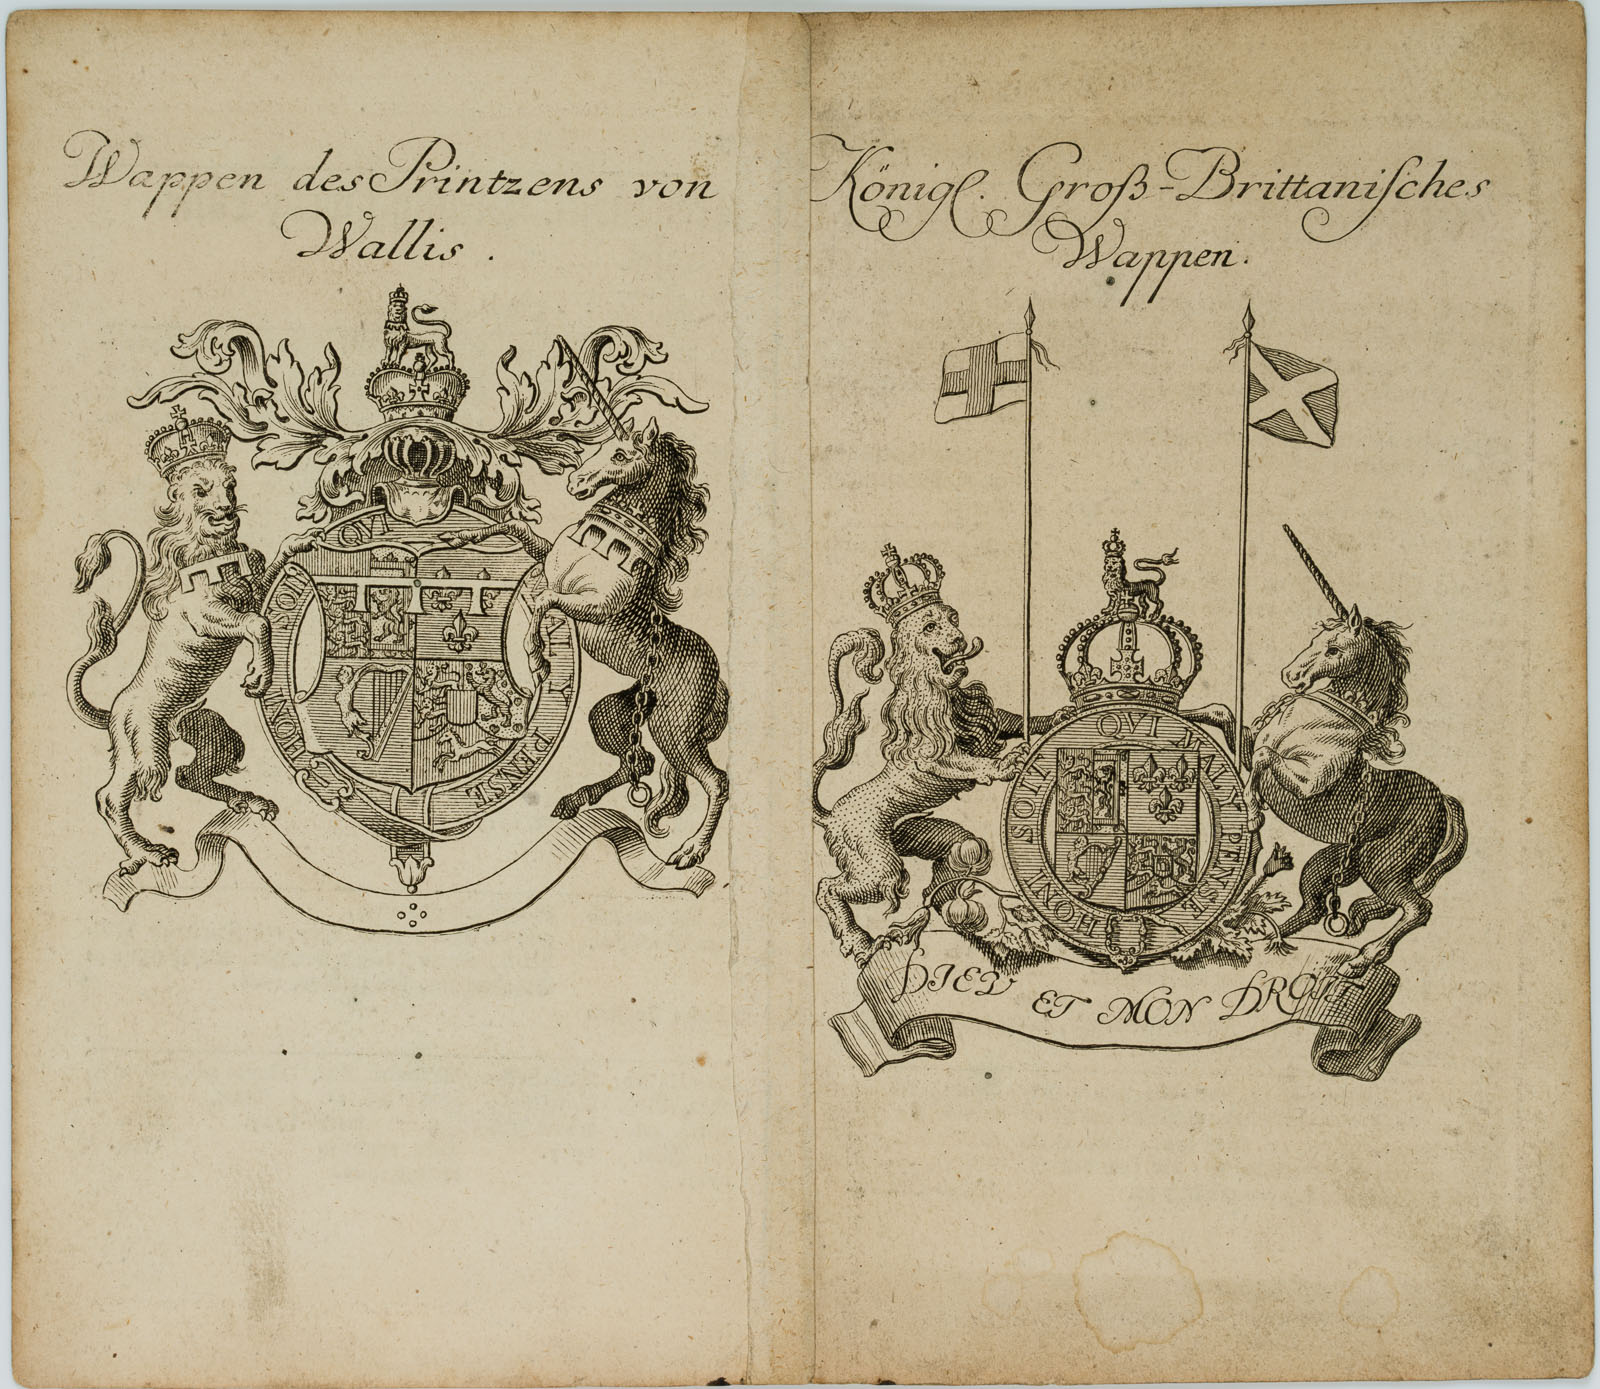 Wappen des Printzens von
Wallis.
HONI SOIT QVI MALY PENSE
Königl. Groß-Brittaniſches
Wappen.
HONI SOIT QVI MALY PENSE
DIEV ET MON DROIT